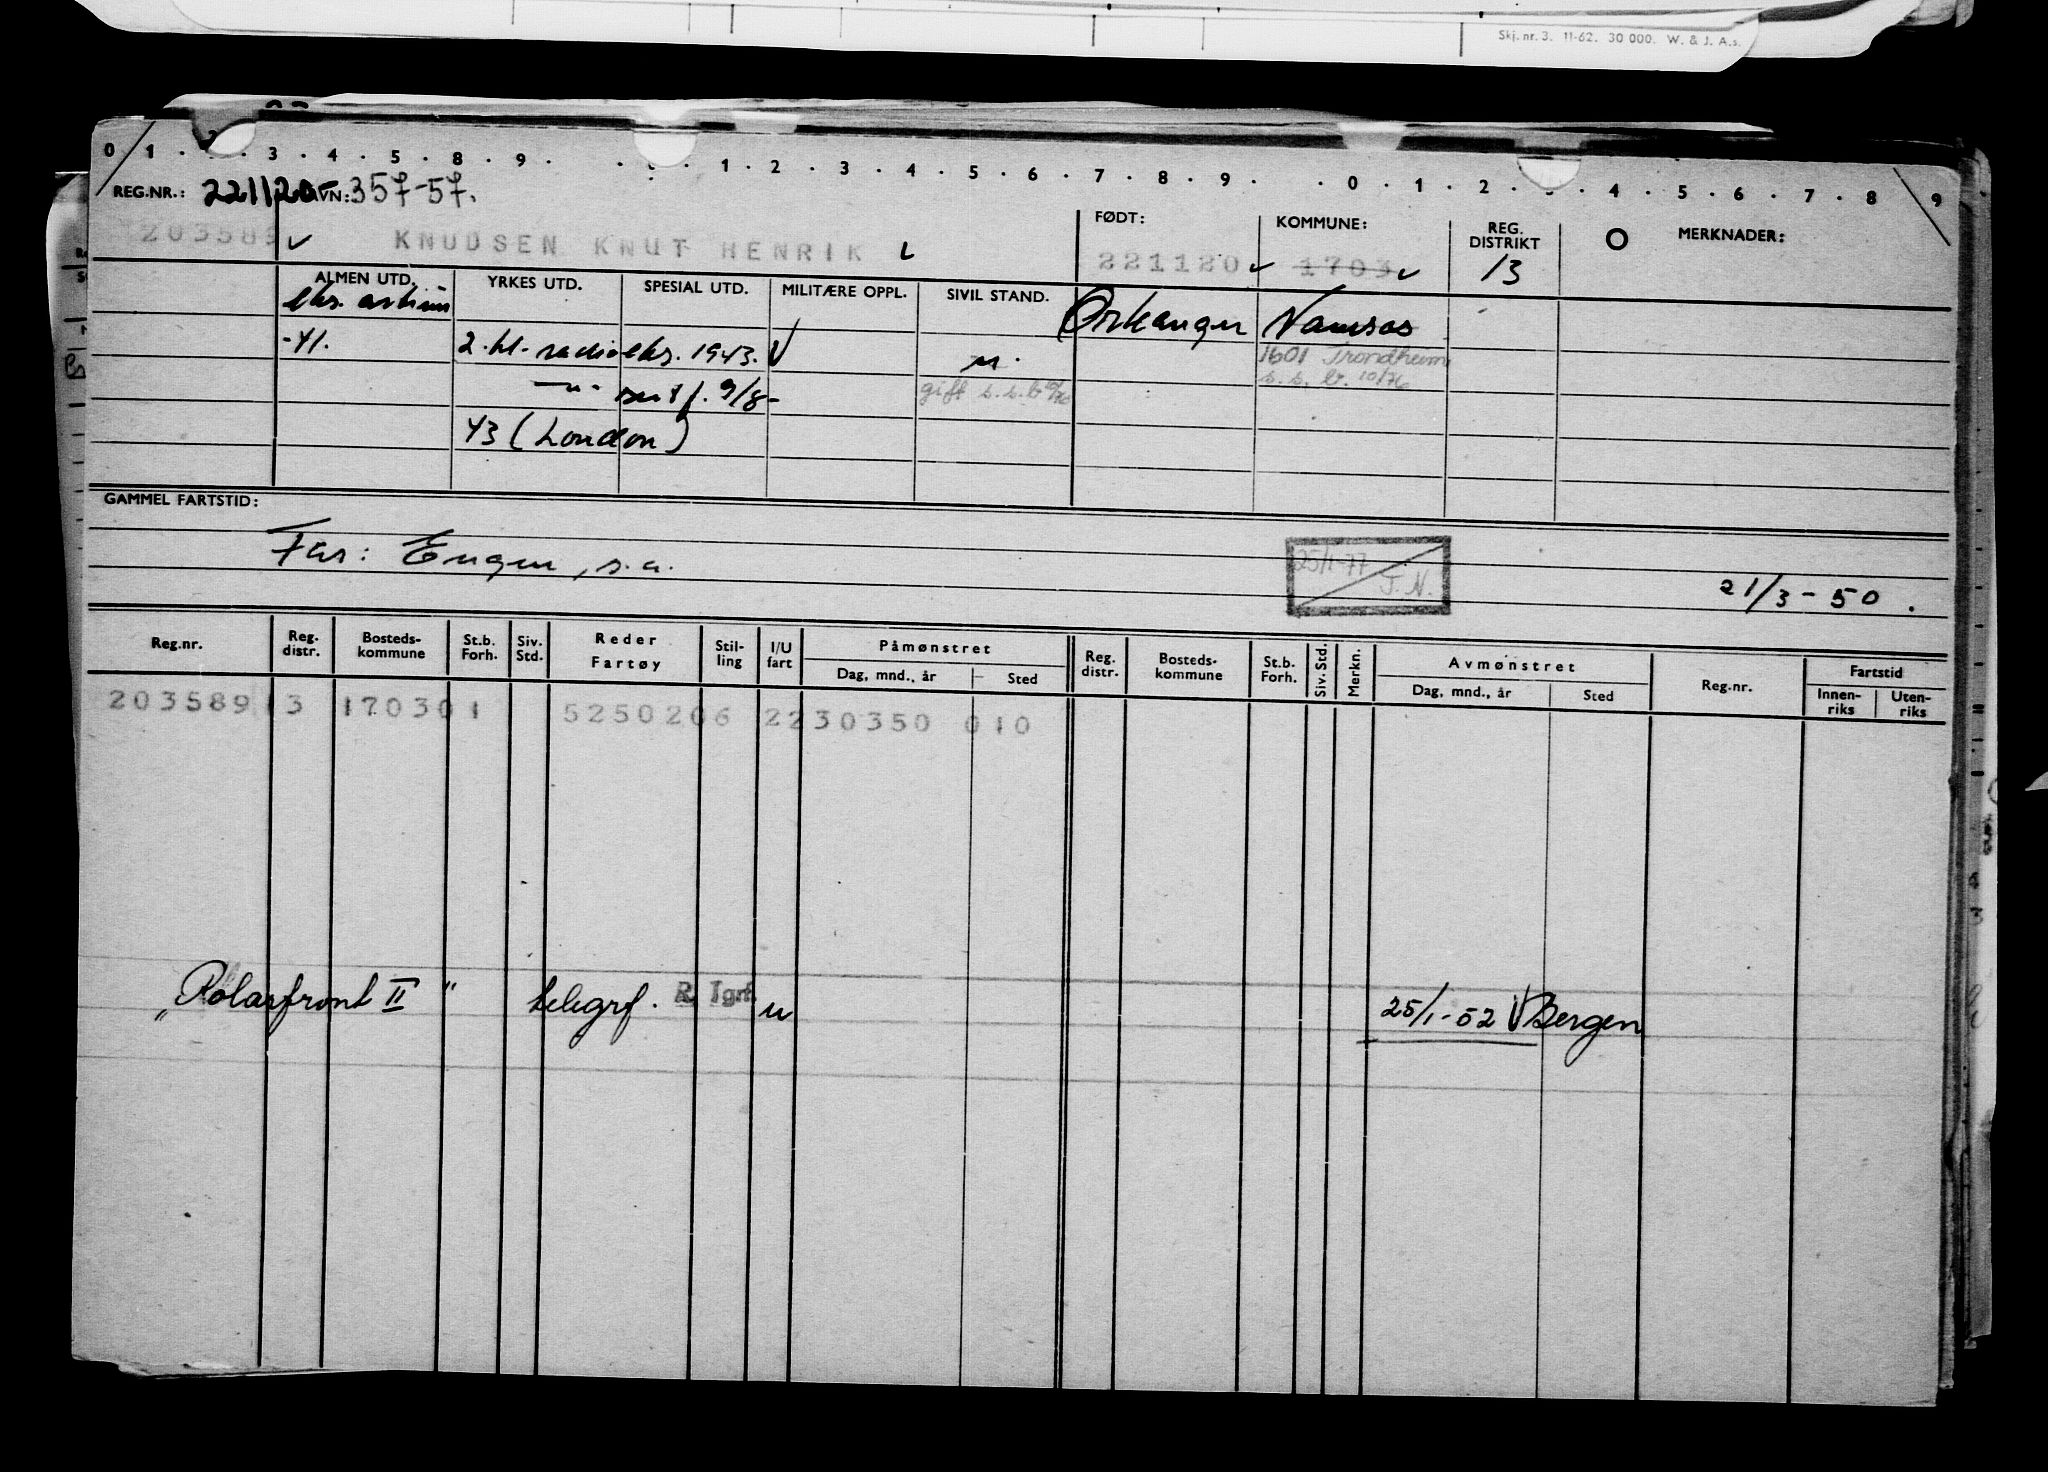 Skj. nr. 3. 11-62. 30 000. W. & J. A.s.
0 1 . . . 3 . 4 . 5 . 8 . 9 . . . 1 . 2 . 3 . 4 . 5 . 6 . 7 . 8 . 9 . . 0 . 1 . 2 . . 4 . 5 . 6 . 7 . 8 9
REG.NR.: 221120 AVN: 357-57.
203589 KNUDSEN KNUT HENRIK
FØDT: KOMMUNE: REG. DISTRIKT MERKNADER:
221120 1703 13
ALMEN UTD. YRKES UTD. SPESIAL UTD. MILITÆRE OPPL. SIVIL STAND.
eks. artium Orkanger Namsos
-41. 2. kl. radioeks. 1943. u. 1601 Trondheim
s. s. b. 10/76
— " - sert f. 9/8- gift s.s.b 10/76
43 (London)
GAMMEL FARTSTID:
Far: Eugen, s.a.
25/1-77
J. N.
21/3 - 50.
Reg.nr. Reg. distr. Bosteds- kommune St.b. Forh. Siv. Std. Reder Fartøy Stil- ling I/U fart Påmønstret Dag, mnd., år Sted Reg. distr. Bosteds- kommune St.b. Forh. Siv. Std. Merkn. Avmønstret Dag, mnd., år Sted Reg.nr. Fartstid Innen- riks Uten- riks
203589 13 1703 01 5250206 2230350 010
"Polarfront II" telegrf. R. Tgrf. u 25/1-52 Bergen